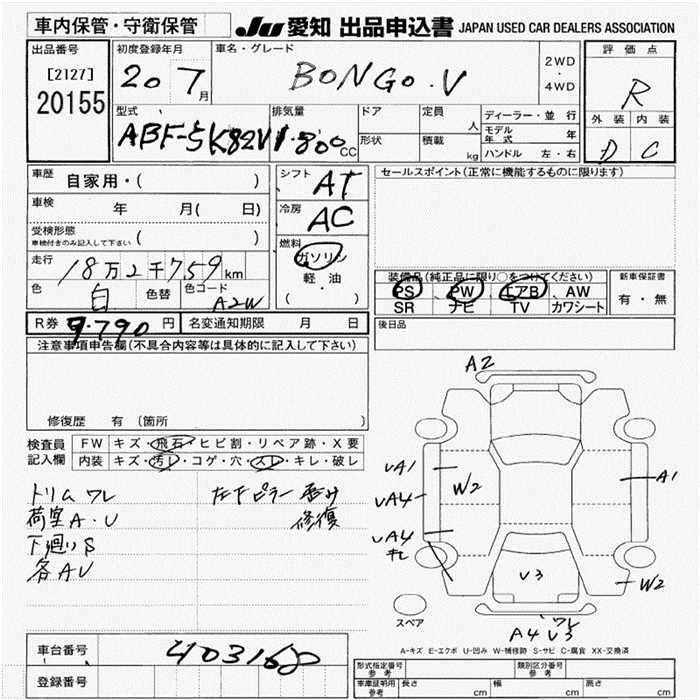 車内保管・守衛保管
JU 愛知 出品申込書 JAPAN USED CAR DEALERS ASSOCIATION
出品番号
[2127]
20155
初度登録年月
20 7月
車名・グレード
BONGO.V
2WD
・
4WD
評価点
R
外装 内装
D C
型式
ABF-SK82V
排気量
1.800 CC
ドア
形状
定員
人
積載
kg
ディーラー・並行
モデル年式 年
ハンドル 左・右
車歴 自家用・( )
車検 年 月( 日)
受検形態
車検付きのみ記入して下さい ( )
走行 18万2千759km
色 白 色替 色コード A2W
シフト AT
冷房 AC
燃料
ガソリン
軽・油
( ・ )
セールスポイント(正常に機能するものに限ります)
装備品(純正品に限り○をつけてください)
PS PW エアB AW
SR ナビ TV カワシート
新車保証書
有・無
後日品
R券 9.790円 名変通知期限 月 日
注意事項申告欄(不具合内容等は具体的に記入して下さい)
修復歴 有 〔箇所 〕
検査員記入欄
FW キズ・飛石・ヒビ割・リペア跡・X要
内装 キズ・汚レ・コゲ・穴・スレ・キレ・破レ
トリム ワレ
荷室A.U
下廻りS
各AU
修復
A2
UA1
UA4
UA4
キレ
W2
A1
U3
W2
ワレ
A4 U3
スペア
A-キズ E-エクボ U-凹み W-補修跡 S-サビ C-腐食 XX-交換済
車台番号 403168
登録番号
形式指定番号 参考
類別区分番号 参考
車庫証明用 参考
長さ cm 幅 cm 高さ cm